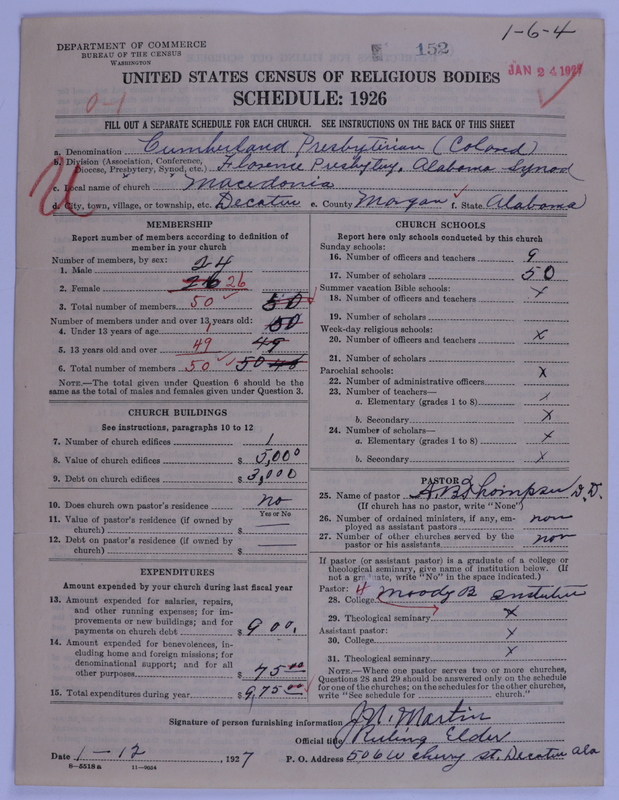 1-6-4
DEPARTMENT OF COMMERCE
BUREAU OF THE CENSUS
WASHINGTON
152
JAN 24 1927
UNITED STATES CENSUS OF RELIGIOUS BODIES
SCHEDULE: 1926
0-1
FILL OUT A SEPARATE SCHEDULE FOR EACH CHURCH. SEE INSTRUCTIONS ON THE BACK OF THIS SHEET
a. Denomination Cumberland Presbyterian (Colored)
b. Division (Association, Conference, Diocese, Presbytery, Synod, etc.) Florence Presbytry, Alabama Synod
c. Local name of church Macedonia
d. City, town, village, or township, etc. Decatur e. County Morgan f. State Alabama
MEMBERSHIP
Report number of members according to definition of
member in your church
Number of members, by sex:
1. Male 24
2. Female 26 26
3. Total number of members 50 50
Number of members under and over 13 years old:
4. Under 13 years of age 1 50
5. 13 years old and over 49 49
6. Total number of members 50 50 46
NOTE.—The total given under Question 6 should be the
same as the total of males and females given under Question 3.
CHURCH BUILDINGS
See instructions, paragraphs 10 to 12
7. Number of church edifices 1
8. Value of church edifices $ 5,000
9. Debt on church edifices $ 3,000
10. Does church own pastor's residence no
Yes or No
11. Value of pastor's residence (if owned by
church) $
12. Debt on pastor's residence (if owned by
church) $
EXPENDITURES
Amount expended by your church during last fiscal year
13. Amount expended for salaries, repairs,
and other running expenses; for im-
provements or new buildings; and for
payments on church debt $ 900.
14. Amount expended for benevolences, in-
cluding home and foreign missions; for
denominational support; and for all
other purposes $ 75 00
15. Total expenditures during year $ 9,75 00
CHURCH SCHOOLS
Report here only schools conducted by this church
Sunday schools:
16. Number of officers and teachers 9
17. Number of scholars 50
Summer vacation Bible schools:
18. Number of officers and teachers x
19. Number of scholars
Week-day religious schools:
20. Number of officers and teachers x
21. Number of scholars
Parochial schools: x
22. Number of administrative officers
23. Number of teachers—
a. Elementary (grades 1 to 8) x
b. Secondary x
24. Number of scholars—
a. Elementary (grades 1 to 8) x
b. Secondary x
PASTOR
25. Name of pastor A. B. Thompson D.D.
(If church has no pastor, write "None")
26. Number of ordained ministers, if any, em-
ployed as assistant pastors non
27. Number of other churches served by the
pastor or his assistants non
If pastor (or assistant pastor) is a graduate of a college or
theological seminary, give name of institution below. (If
not a graduate, write "No" in the space indicated.)
Pastor: 4
28. College Moody B Institute
29. Theological seminary x
Assistant pastor:
30. College x
31. Theological seminary x
NOTE.—Where one pastor serves two or more churches,
Questions 28 and 29 should be answered only on the schedule
for one of the churches; on the schedules for the other churches,
write "See schedule for church."
Signature of person furnishing information J. N. Martin
Official title Ruling Elder
Date 1-12, 1927 P. O. Address 506 W Cherry St. Decatur Ala
8-5518a 11-9054